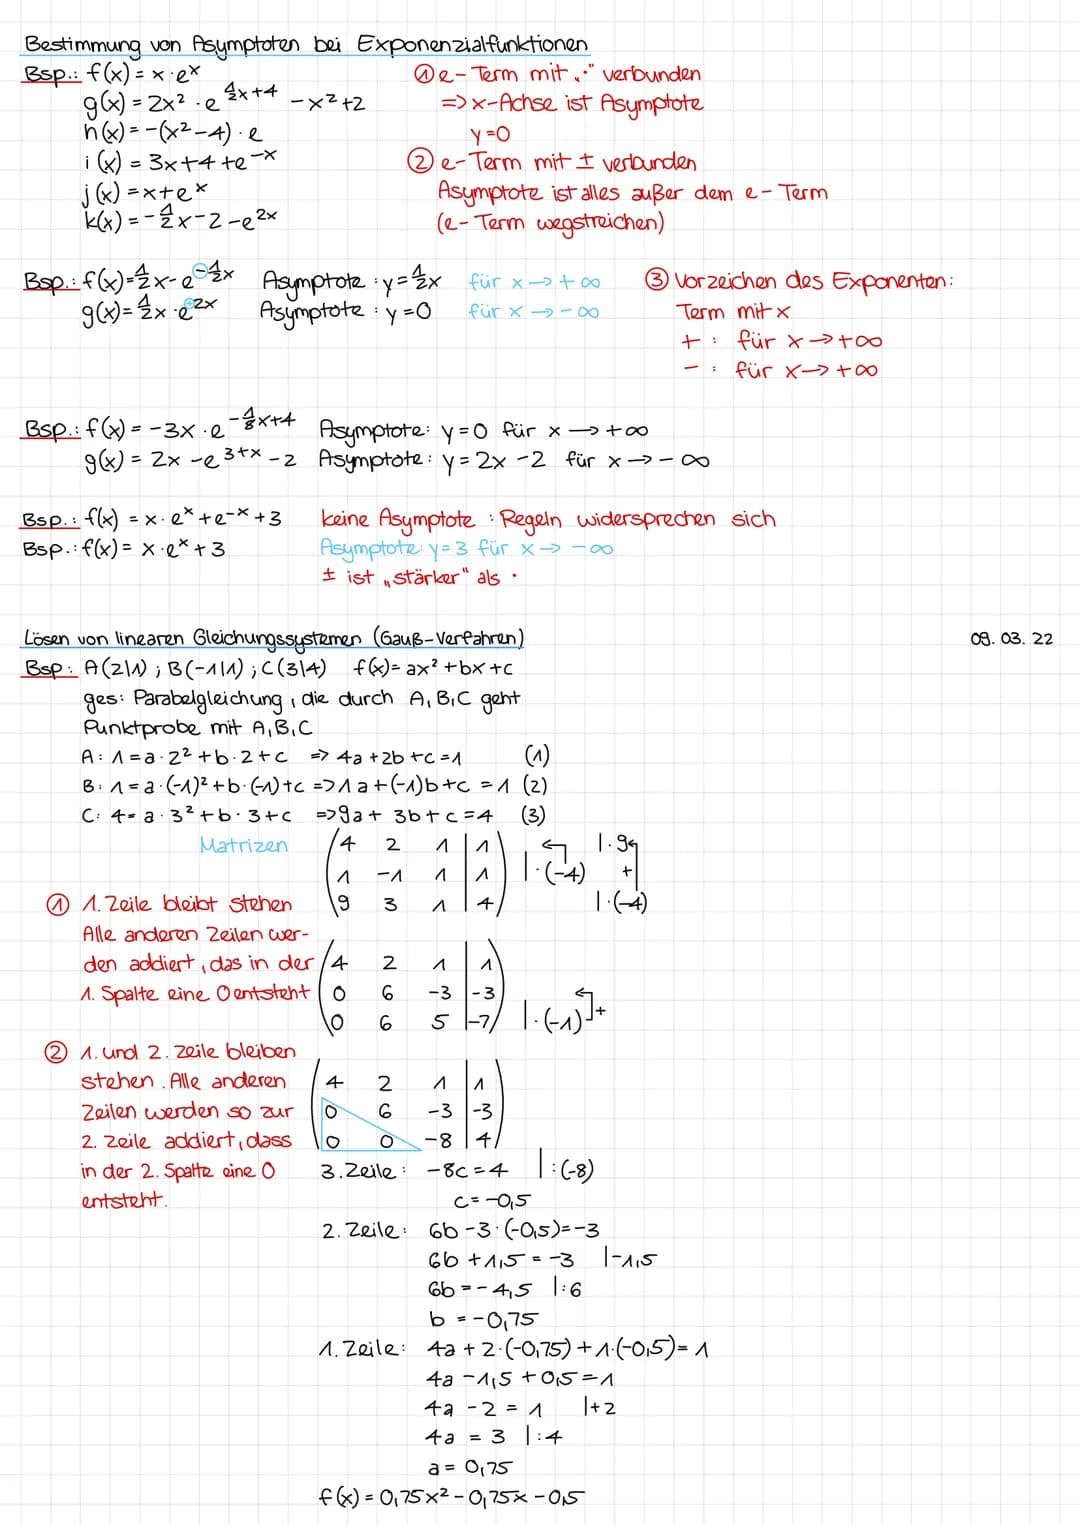 Bestimmung von Asymptoten bei Exponenzialfunktionen
Bsp.: f(x) = x · e^x
g(x) = 2x² · e^(½x+4) - x² + 2
h(x) = -(x² - 4) · e
i(x) = 3x + 4 + e^(-x)
j(x) = x + e^x
k(x) = -½x - 2 - e^(2x)
① e-Term mit „·" verbunden
=> x-Achse ist Asymptote
y = 0
② e-Term mit ± verbunden
Asymptote ist alles außer dem e-Term
(e-Term wegstreichen)
Bsp.: f(x) = ½x - e^(-½x) Asymptote: y = ½x für x → +∞
g(x) = ½x · e^(+2x) Asymptote: y = 0 für x → -∞
③ Vorzeichen des Exponenten:
Term mit x
+ : für x → +∞
- : für x → +∞
Bsp.: f(x) = -3x · e^(-⅛x+4) Asymptote: y = 0 für x → +∞
g(x) = 2x - e^(3+x) - 2 Asymptote: y = 2x - 2 für x → -∞
Bsp.: f(x) = x · e^x + e^(-x) + 3 keine Asymptote: Regeln widersprechen sich
Bsp.: f(x) = x · e^x + 3 Asymptote: y = 3 für x → -∞
± ist „stärker" als ·
Lösen von linearen Gleichungssystemen (Gauß-Verfahren) 09. 03. 22
Bsp: A(2|1) ; B(-1|1) ; C(3|4) f(x) = ax² + bx + c
ges: Parabelgleichung, die durch A, B, C geht
Punktprobe mit A, B, C
A: 1 = a · 2² + b · 2 + c => 4a + 2b + c = 1 (1)
B: 1 = a · (-1)² + b · (-1) + c => 1a + (-1)b + c = 1 (2)
C: 4 = a · 3² + b · 3 + c => 9a + 3b + c = 4 (3)
Matrizen
4 2 1 | 1 | · 9
1 -1 1 | 1 | · (-4) +
9 3 1 | 4 | · (-4)
① 1. Zeile bleibt stehen
Alle anderen Zeilen wer-
den addiert, das in der
1. Spalte eine 0 entsteht
4 2 1 | 1
0 6 -3 | -3
0 6 5 | -7 | · (-1) +
② 1. und 2. Zeile bleiben
stehen. Alle anderen
Zeilen werden so zur
2. Zeile addiert, dass
in der 2. Spalte eine 0
entsteht.
4 2 1 | 1
0 6 -3 | -3
0 0 -8 | 4
3. Zeile: -8c = 4 | : (-8)
c = -0,5
2. Zeile: 6b - 3 · (-0,5) = -3
6b + 1,5 = -3 | -1,5
6b = -4,5 | : 6
b = -0,75
1. Zeile: 4a + 2 · (-0,75) + 1 · (-0,5) = 1
4a - 1,5 + 0,5 = 1
4a - 2 = 1 | +2
4a = 3 | : 4
a = 0,75
f(x) = 0,75x² - 0,75x - 0,5